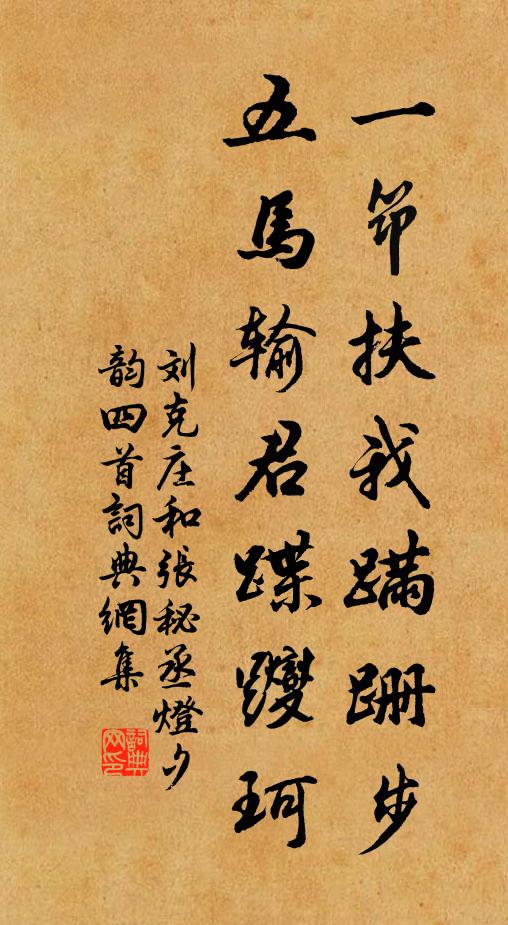 一筇扶我蹣跚步
五馬输君蹀躞珂
刘克庄和張秘丞燈夕
韵四首詞典網集
詞典网印